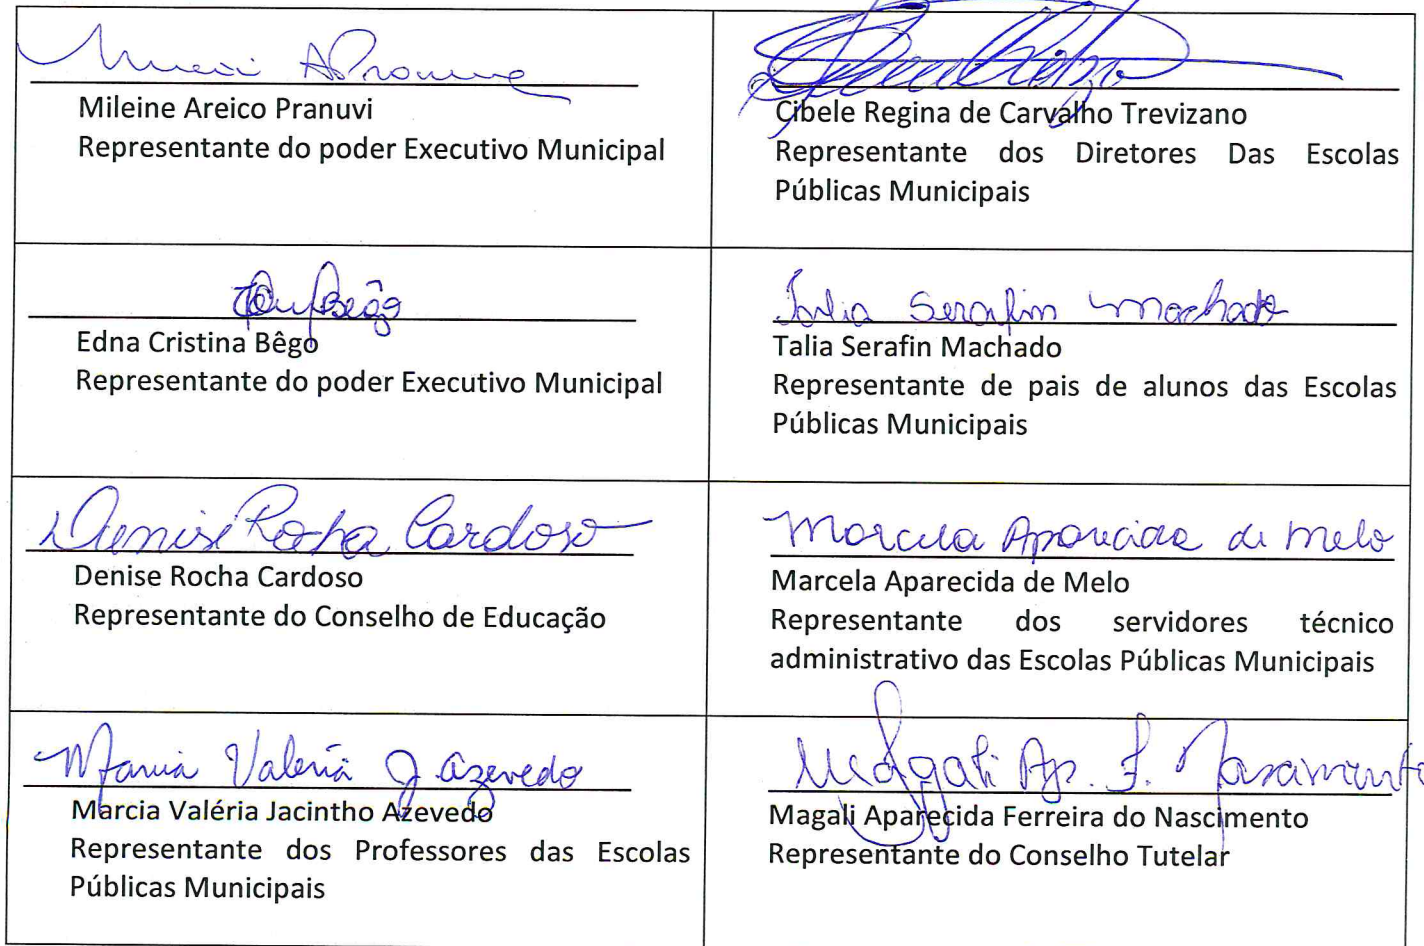 Mileine Areico Pranuvi
Representante do poder Executivo Municipal
Cibele Regina de Carvalho Trevizano
Representante dos Diretores Das Escolas
Públicas Municipais
Bêgo
Edna Cristina Bêgo
Representante do poder Executivo Municipal
Talia Serafim Machado
Talia Serafin Machado
Representante de pais de alunos das Escolas
Públicas Municipais
Denise Rocha Cardoso
Denise Rocha Cardoso
Representante do Conselho de Educação
Marcela Aparecida de Melo
Marcela Aparecida de Melo
Representante dos servidores técnico
administrativo das Escolas Públicas Municipais
Valéria J Azevedo
Marcia Valéria Jacintho Azevedo
Representante dos Professores das Escolas
Públicas Municipais
Magali Ap. F. Nascimento
Magali Aparecida Ferreira do Nascimento
Representante do Conselho Tutelar